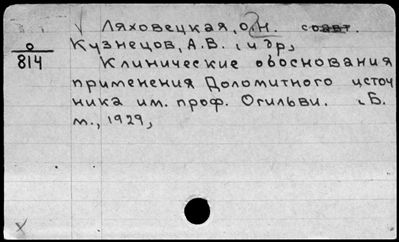 Ляховецкая, О.Н. соавт.
Кузнецов, А.В. [и др]
О
814
Клинические обоснования
применения Доломитного источ
ника им. проф. Огильви. [Б.
м., 1929]